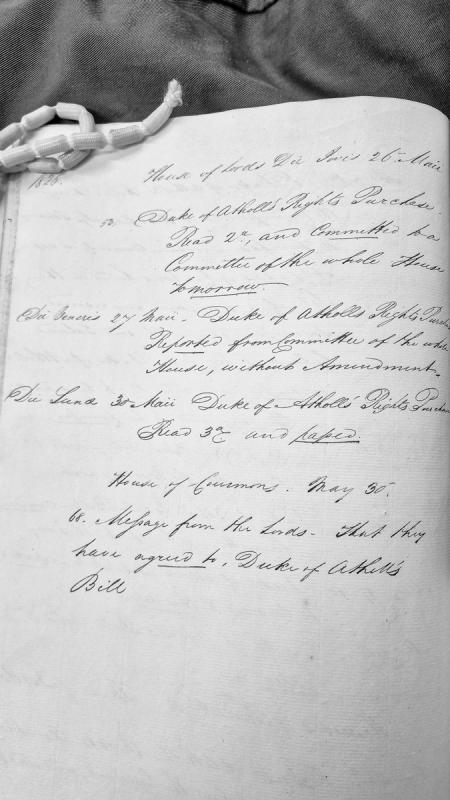 1825. House of Lords Die Jovis 26 Maii
50. Duke of Atholl's Rights Purchase.
Read 2.a, and Committed to a
Committee of the whole House
tomorrow.
Die Veneris 27 Maii. Duke of Atholls Rights Purchase
Reported from Committee of the whole
House, without Amendment.
Die Lunæ 30 Maii Duke of Atholl's Rights Purchase
Read 3.a and passed.
House of Commons. May 30.
68. Message from the Lords - That they
have agreed to, Duke of Atholl's
Bill